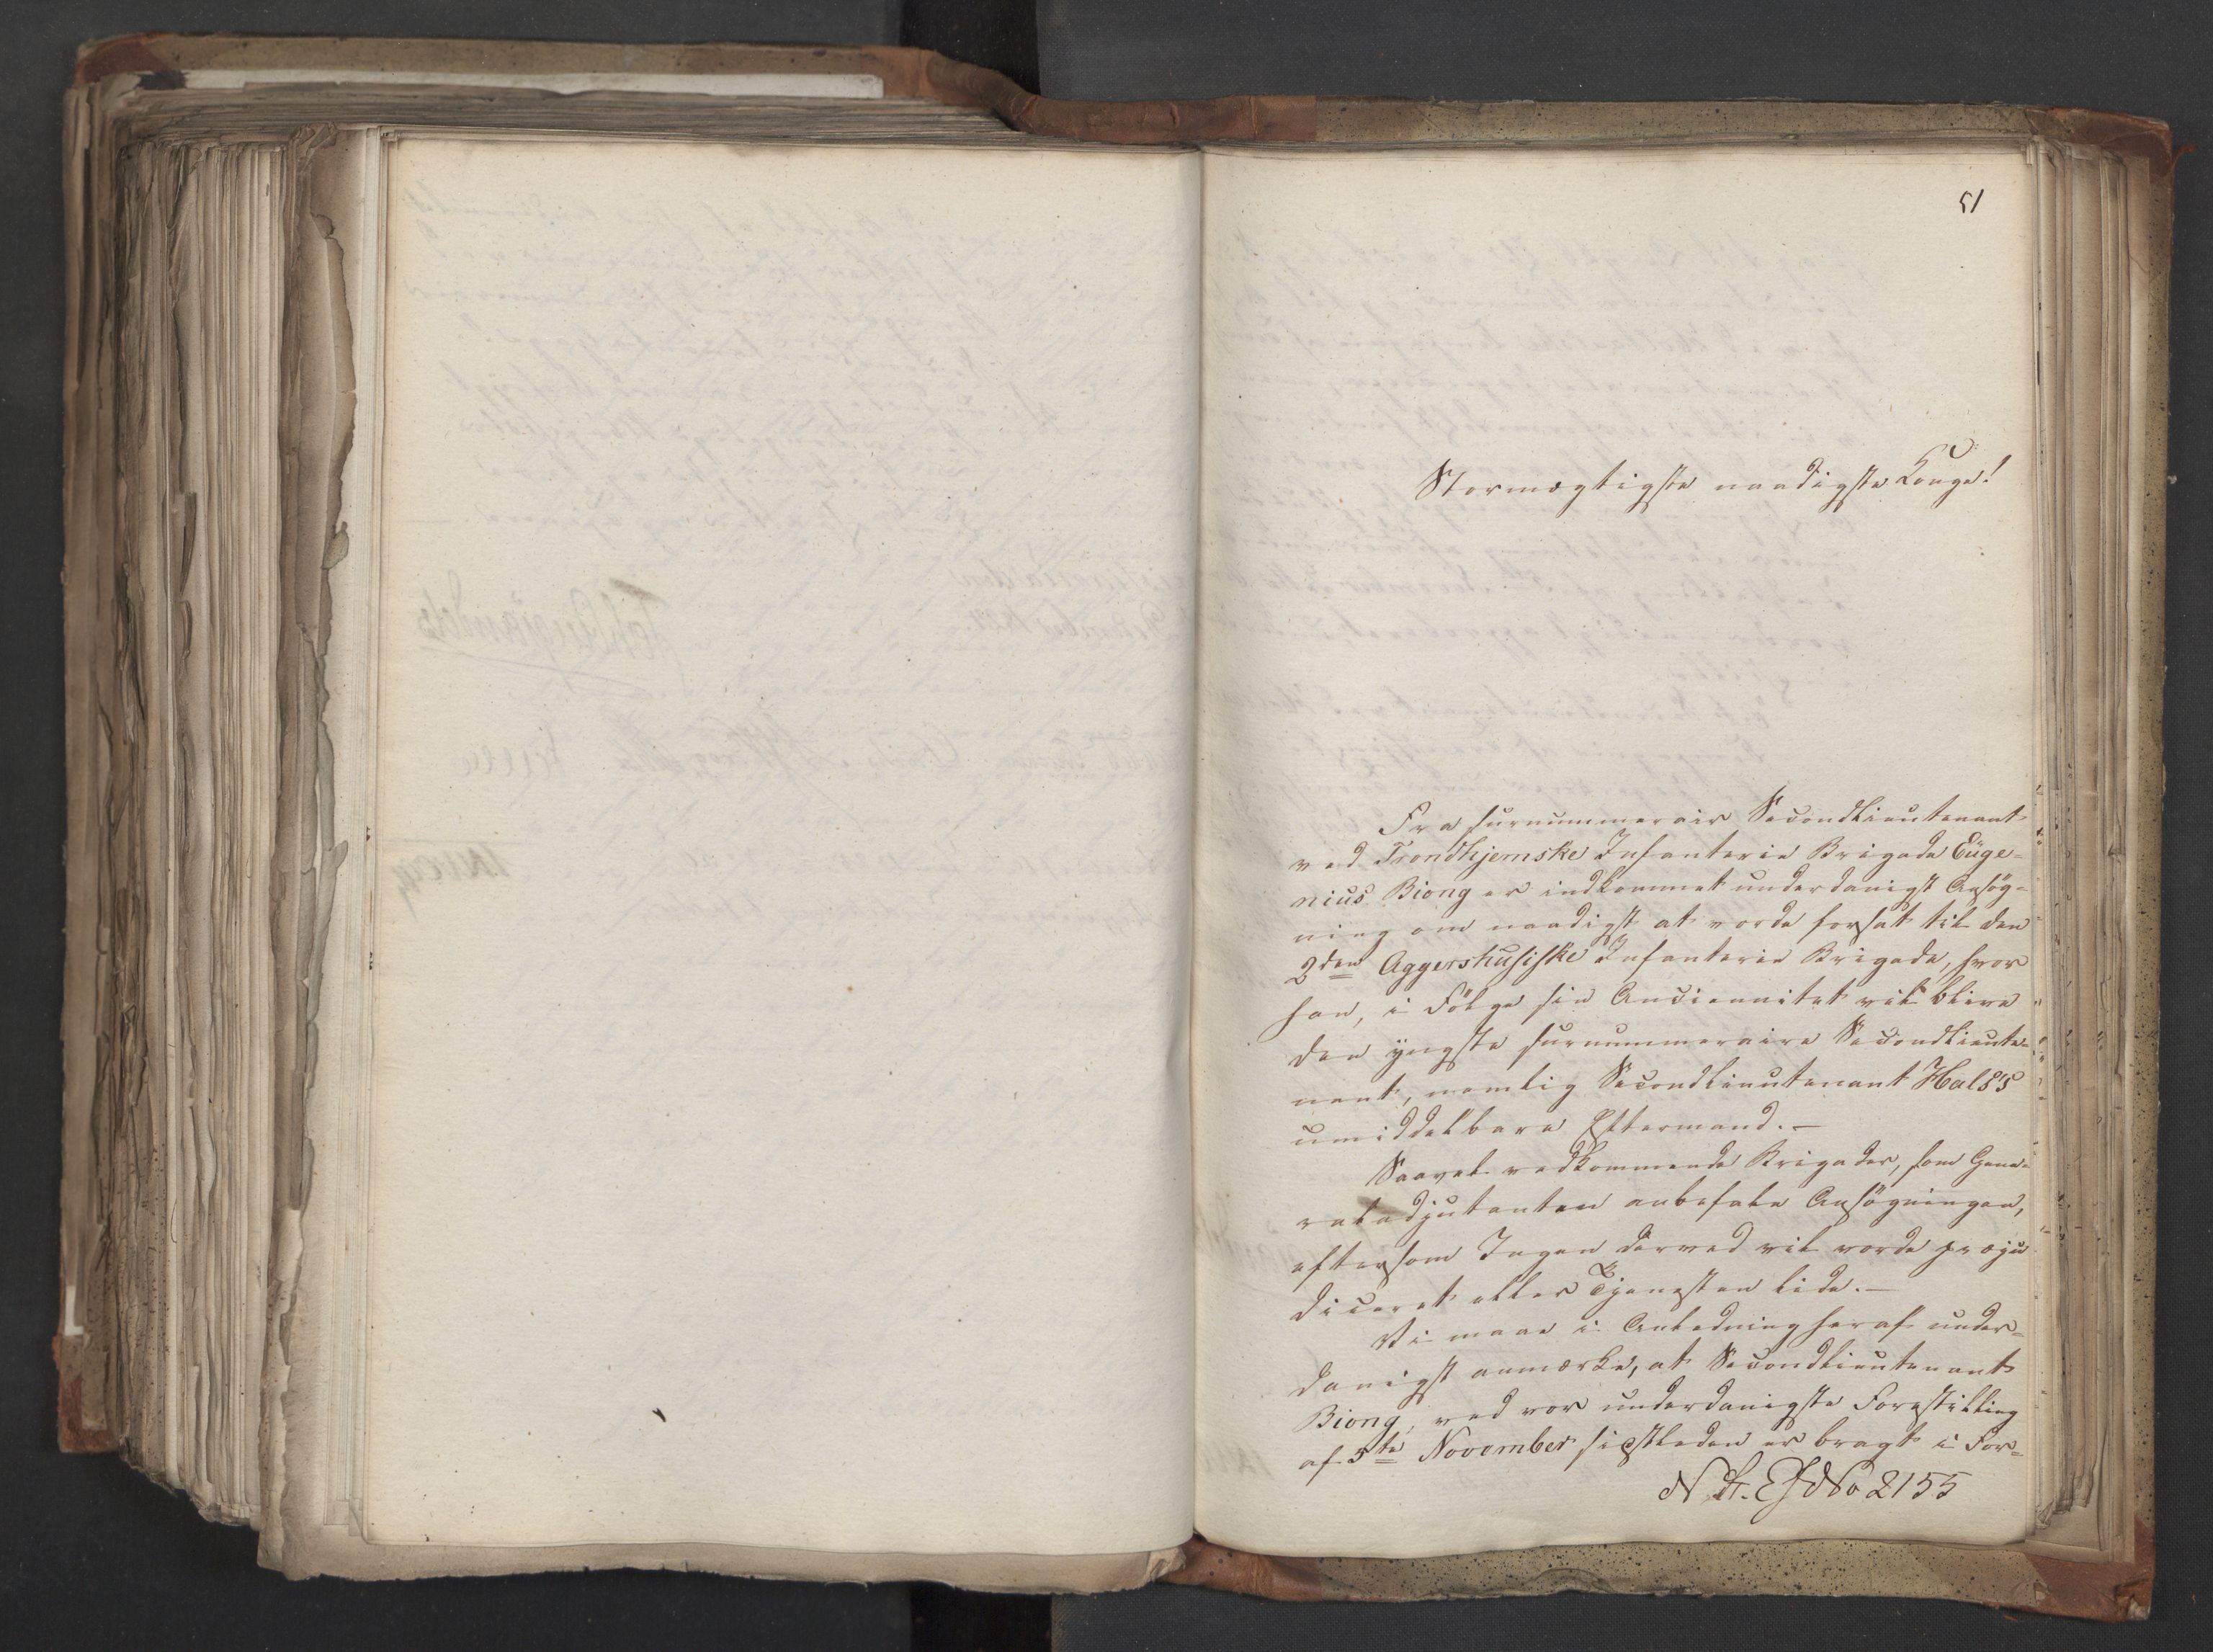 51
Stormægtigste naadigste Konge!
Fra surnummerair Secondlieutenant
ved Trondhjemske Infanterie Brigade Euge=
nius Biong er indkommet underdanigst Ansøg=
ning om naadigst at vorde forsat til den
2den Aggershusiske Infanterie Brigade, hvor
han, i Følge sin Anciennitet vil blive
den yngste surnummeraire Secondlieute=
nant, nemlig Secondlieutenant Hals's
umiddelbare Eftermand. —
Saavel vedkommende Brigader, som Gene=
raladjutanten anbefale Ansøgningen,
eftersom Ingen derved vil vorde præju
diceret eller Tjenesten lide. —
Vi maae i Anledning heraf under=
danigst anmærke, at Secondlieutenant
Biong, ved vor underdanigste Forestilling
af 5te November sidstleden er bragt i For=
No 2155